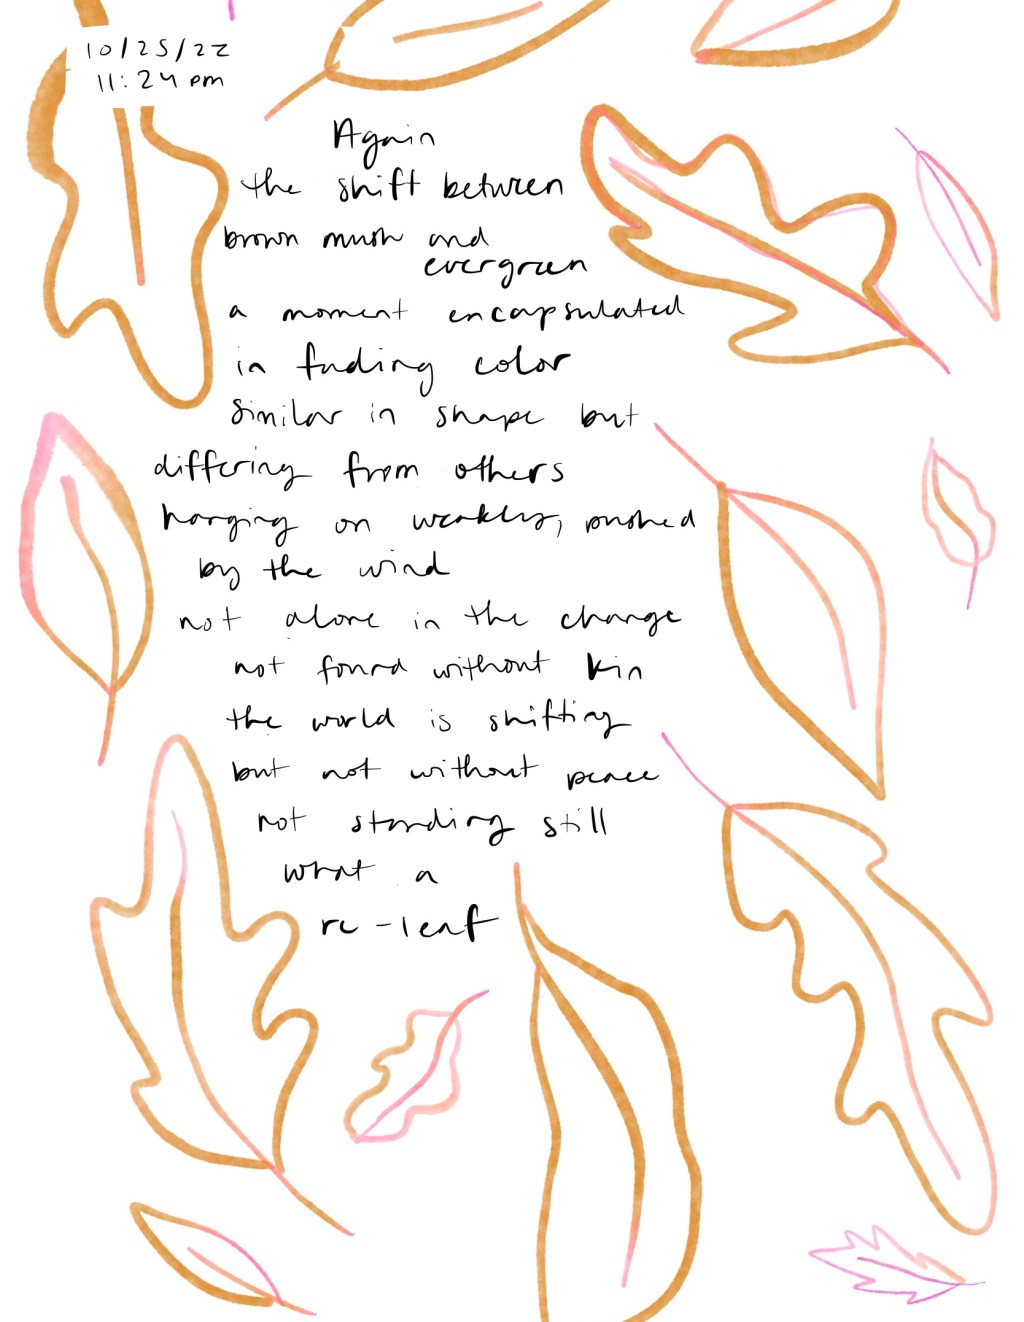 10/25/22
11:24 pm
Again
the shift between
brown mush and
evergreen
a moment encapsulated
in fading color
similar in shape but
differing from others
hanging on weakly, pushed
by the wind
not alone in the change
not found without kin
the world is shifting
but not without peace
not standing still
what a
re-leaf